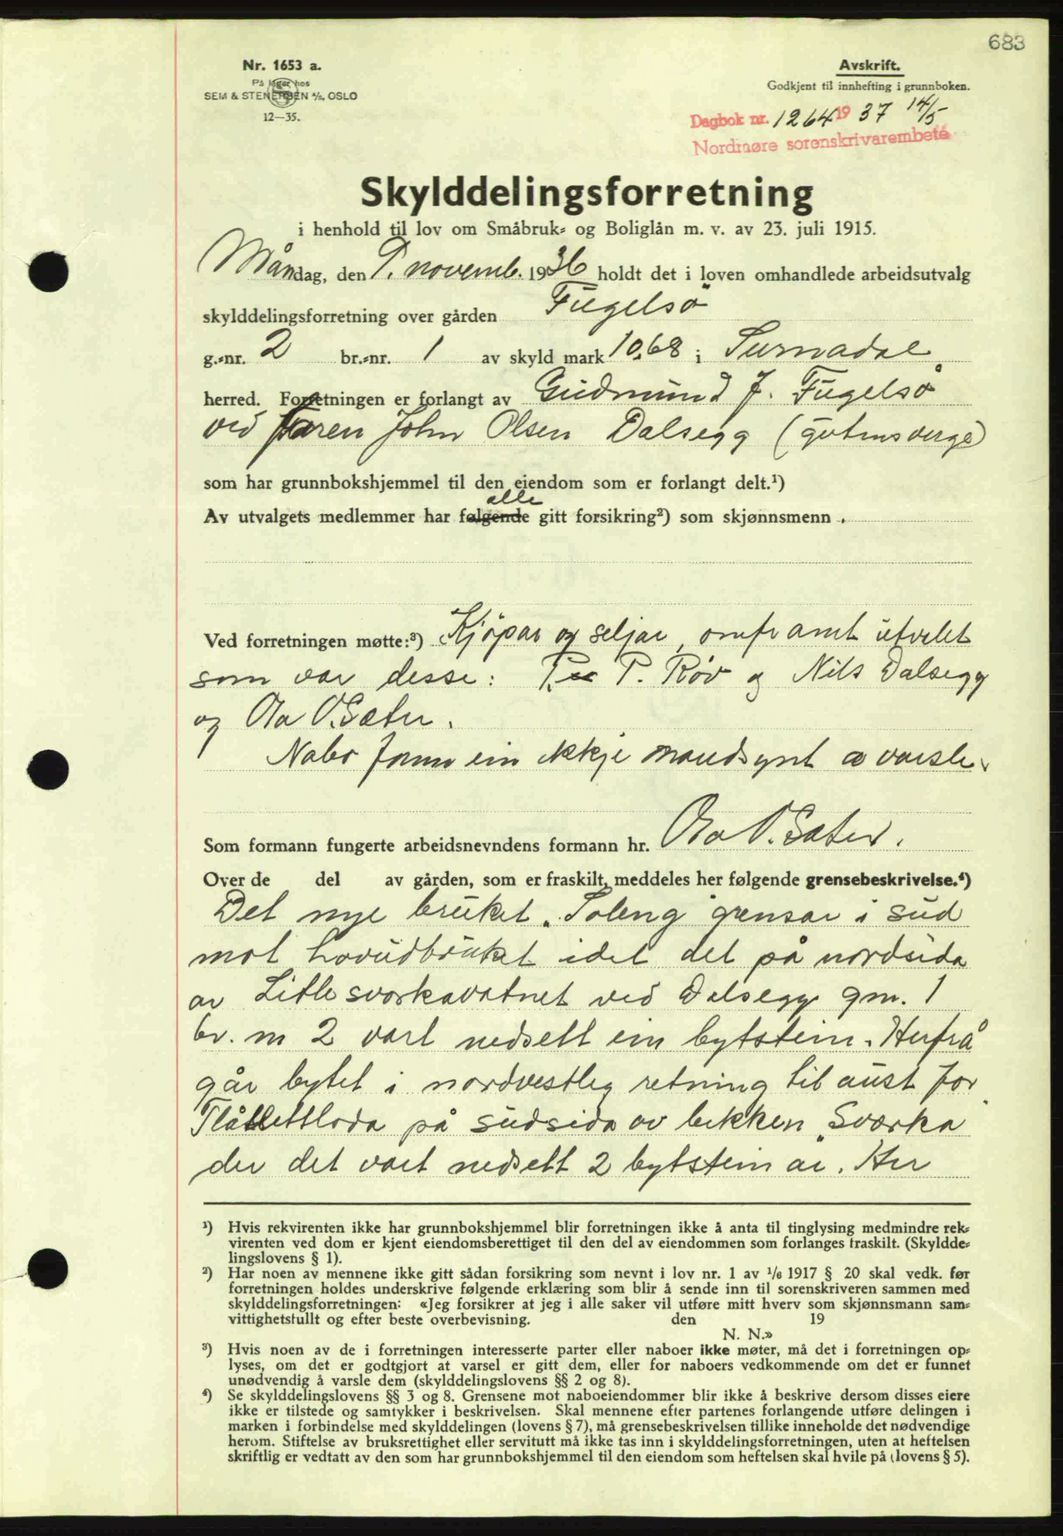 683
Nr. 1653 a.
På lager hos
SEM & STENERSEN A/S, OSLO
12—35.
Avskrift.
Godkjent til innhefting i grunnboken.
Dagbok nr. 1264 1937 14/5
Nordmøre sorenskrivarembete
Skylddelingsforretning
i henhold til lov om Småbruk- og Boliglån m. v. av 23. juli 1915.
Måndag, den 9. novemb. 1936 holdt det i loven omhandlede arbeidsutvalg
skylddelingsforretning over gården Fugelsö
g.-nr. 2 br.-nr. 1 av skyld mark 10,68 i Surnadal
herred. Forretningen er forlangt av Gudmund J. Fugelsö
ved John Olsen Dalsegg
som har grunnbokshjemmel til den eiendom som er forlangt delt.¹)
alle
Av utvalgets medlemmer har følgende gitt forsikring²) som skjønnsmenn .
Ved forretningen møtte:³) Kjöpar og seljar, omframt utvalet
som var desse: P. Røv og Nils Dalsegg
og Ola O. Sæter.
Nabo fann ein ikkje naudsynt a varsle.
Som formann fungerte arbeidsnevndens formann hr. Ola O. Sæter.
Over de del av gården, som er fraskilt, meddeles her følgende grensebeskrivelse.⁴)
Det nye bruket "Soleng" grensar i sud
mot hovudbruket idet det på nordsida
av Litlesvorkavatnet ved Dalsegg gnr. 1
br. nr 2 vart nedsett ein bytstein. Herfrå
går bytet i nordvestleg retning til aust for
på sudsida av bekken "Svorka"
der det vart nedsett 2 bytsteinar. Her
¹) Hvis rekvirenten ikke har grunnbokshjemmel blir forretningen ikke å anta til tinglysing medmindre rek-
virenten ved dom er kjent eiendomsberettiget til den del av eiendommen som forlanges fraskilt. (Skyldde-
lingslovens § 1).
²) Har noen av mennene ikke gitt sådan forsikring som nevnt i lov nr. 1 av 1/6 1917 § 20 skal vedk. før
forretningen holdes underskrive følgende erklæring som blir å sende inn til sorenskriveren sammen med
skylddelingsforretningen: «Jeg forsikrer at jeg i alle saker vil utføre mitt hverv som skjønnsmann sam-
vittighetsfullt og efter beste overbevisning. den 19
N. N.»
³) Hvis noen av de i forretningen interesserte parter eller naboer ikke møter, må det i forretningen op-
lyses, om det er godtgjort at varsel er gitt dem, eller for naboers vedkommende om det er funnet
unødvendig å varsle dem (skylddelingslovens §§ 2 og 8).
⁴) Se skylddelingslovens §§ 3 og 8. Grensene mot naboeiendommer blir ikke å beskrive dersom disses eiere
ikke er tilstede og samtykker i beskrivelsen. Skal mennene efter partenes forlangende utføre delingen i
marken i forbindelse med skylddelingen (lovens § 7), må grensebeskrivelsen tillike inneholde det nødvendige
herom. Stiftelse av bruksrettighet eller servitutt må ikke tas inn i skylddelingsforretningen, uten at heftelsen
skriftlig er vedtatt av den som har grunnbokshjemmel til den eiendom som heftelsen skal hvile på (lovens § 5).